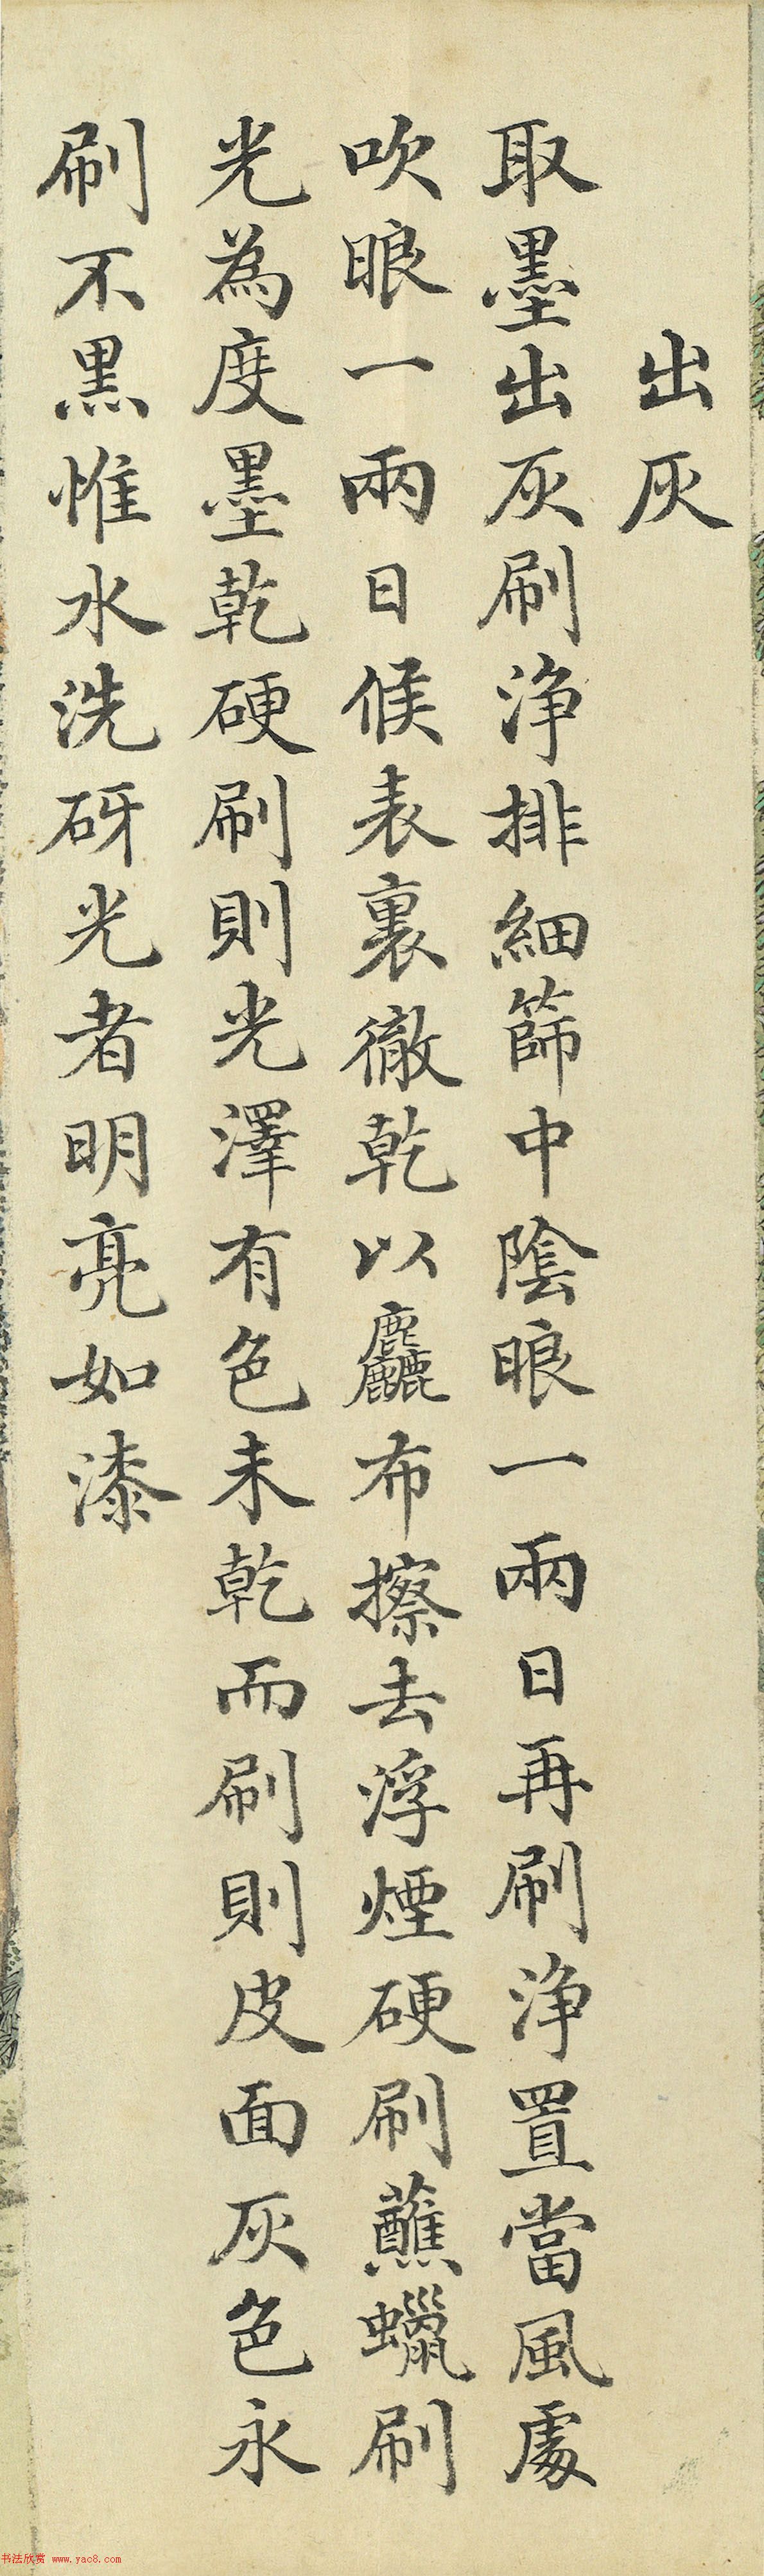 出灰
取墨出灰刷浄排細篩中陰眼一兩日再刷浄置當風處
吹眼一兩日候表裏徹乾以麤布擦去浮煙硬刷蘸蠟刷
光為度墨乾硬刷則光澤有色未乾而刷則皮面灰色永
刷不黒惟水洗砑光者明亮如漆
书法欣赏 www.yac8.com